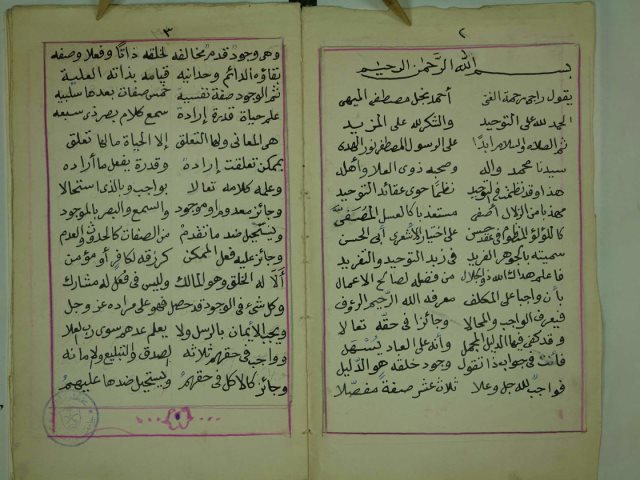 ٢
بسم الله الرحمن الرحيم
يقول راجى رحمة الغنى أحمد نجل مصطفى الميهى
الحمد لله على التوحيد والشكر لله على المزيد
ثم الصلاة والسلام أبدًا على الرسول المصطفى نور الهدى
سيدنا محمد وآله وصحبه ذوى العلا وأهله
هذا وقد نظمت فى التوحيد نظمًا حوى عقائد التوحيد
مهذبا من الزلال أصفى مستعذبا كالعسل المصفى
كاللؤلؤ المنظوم فى عقد حسن على اختيار الأشعرى أبى الحسن
سميته بالجوهر الفريد فى التوحيد والتفريد
فاعلم هداك الله ذو الجلال من فضله لصالح الاعمال
بأن واجبا على المكلف معرفة الله الرحيم الرؤف
فيعرف الواجب والمحالا وجائزا فى حقه تعالا
وقد كفى فيها الدليل المجمل وأنه على العباد يسهل
فأنت فى جوابه ذا تقول وجود خلقه هو الدليل
فواجب لله جل وعلا ثلاث عشر صفة مفصلا
٣
وهى وجود قدم مخالفه لخلقه ذاتًا وفعلا وصفه
بقاؤه الدائم وحدانيه قيامه بذاته العلية
ثم الوجود صفة نفسية خمس صفات بعدها سلبيه
علم حياة قدرة إرادة سمع كلام بصر ذى سبعه
هى المعانى ولها التعلق إلا الحياة مالها تعلق
بممكن تعلقت إرادة وقدرة بفعل ما أراده
وعلمه كلامه تعالا بواجب وبالذى استحالا
وجائز معدوم او موجود والسمع والبصر بالموجود
ويستحيل ضد ما تقدم من الصفات كالحدوث والعدم
وجائز عليه فعل الممكن كرزقه لكافر أو مؤمن
ألا له الخلق وهو المالك وليس فى فعل له مشارك
وكل شئ فى الوجود قد حصل فهو على مراده عز وجل
ويجب الإيمان بالرسل ولا يعلم عدهم سوى رب العلا
وواجب فى حقهم ثلاثه لصدق والتبليغ والامانه
وجائز كالاكل فى حقهم ويستحيل ضدها عليهم